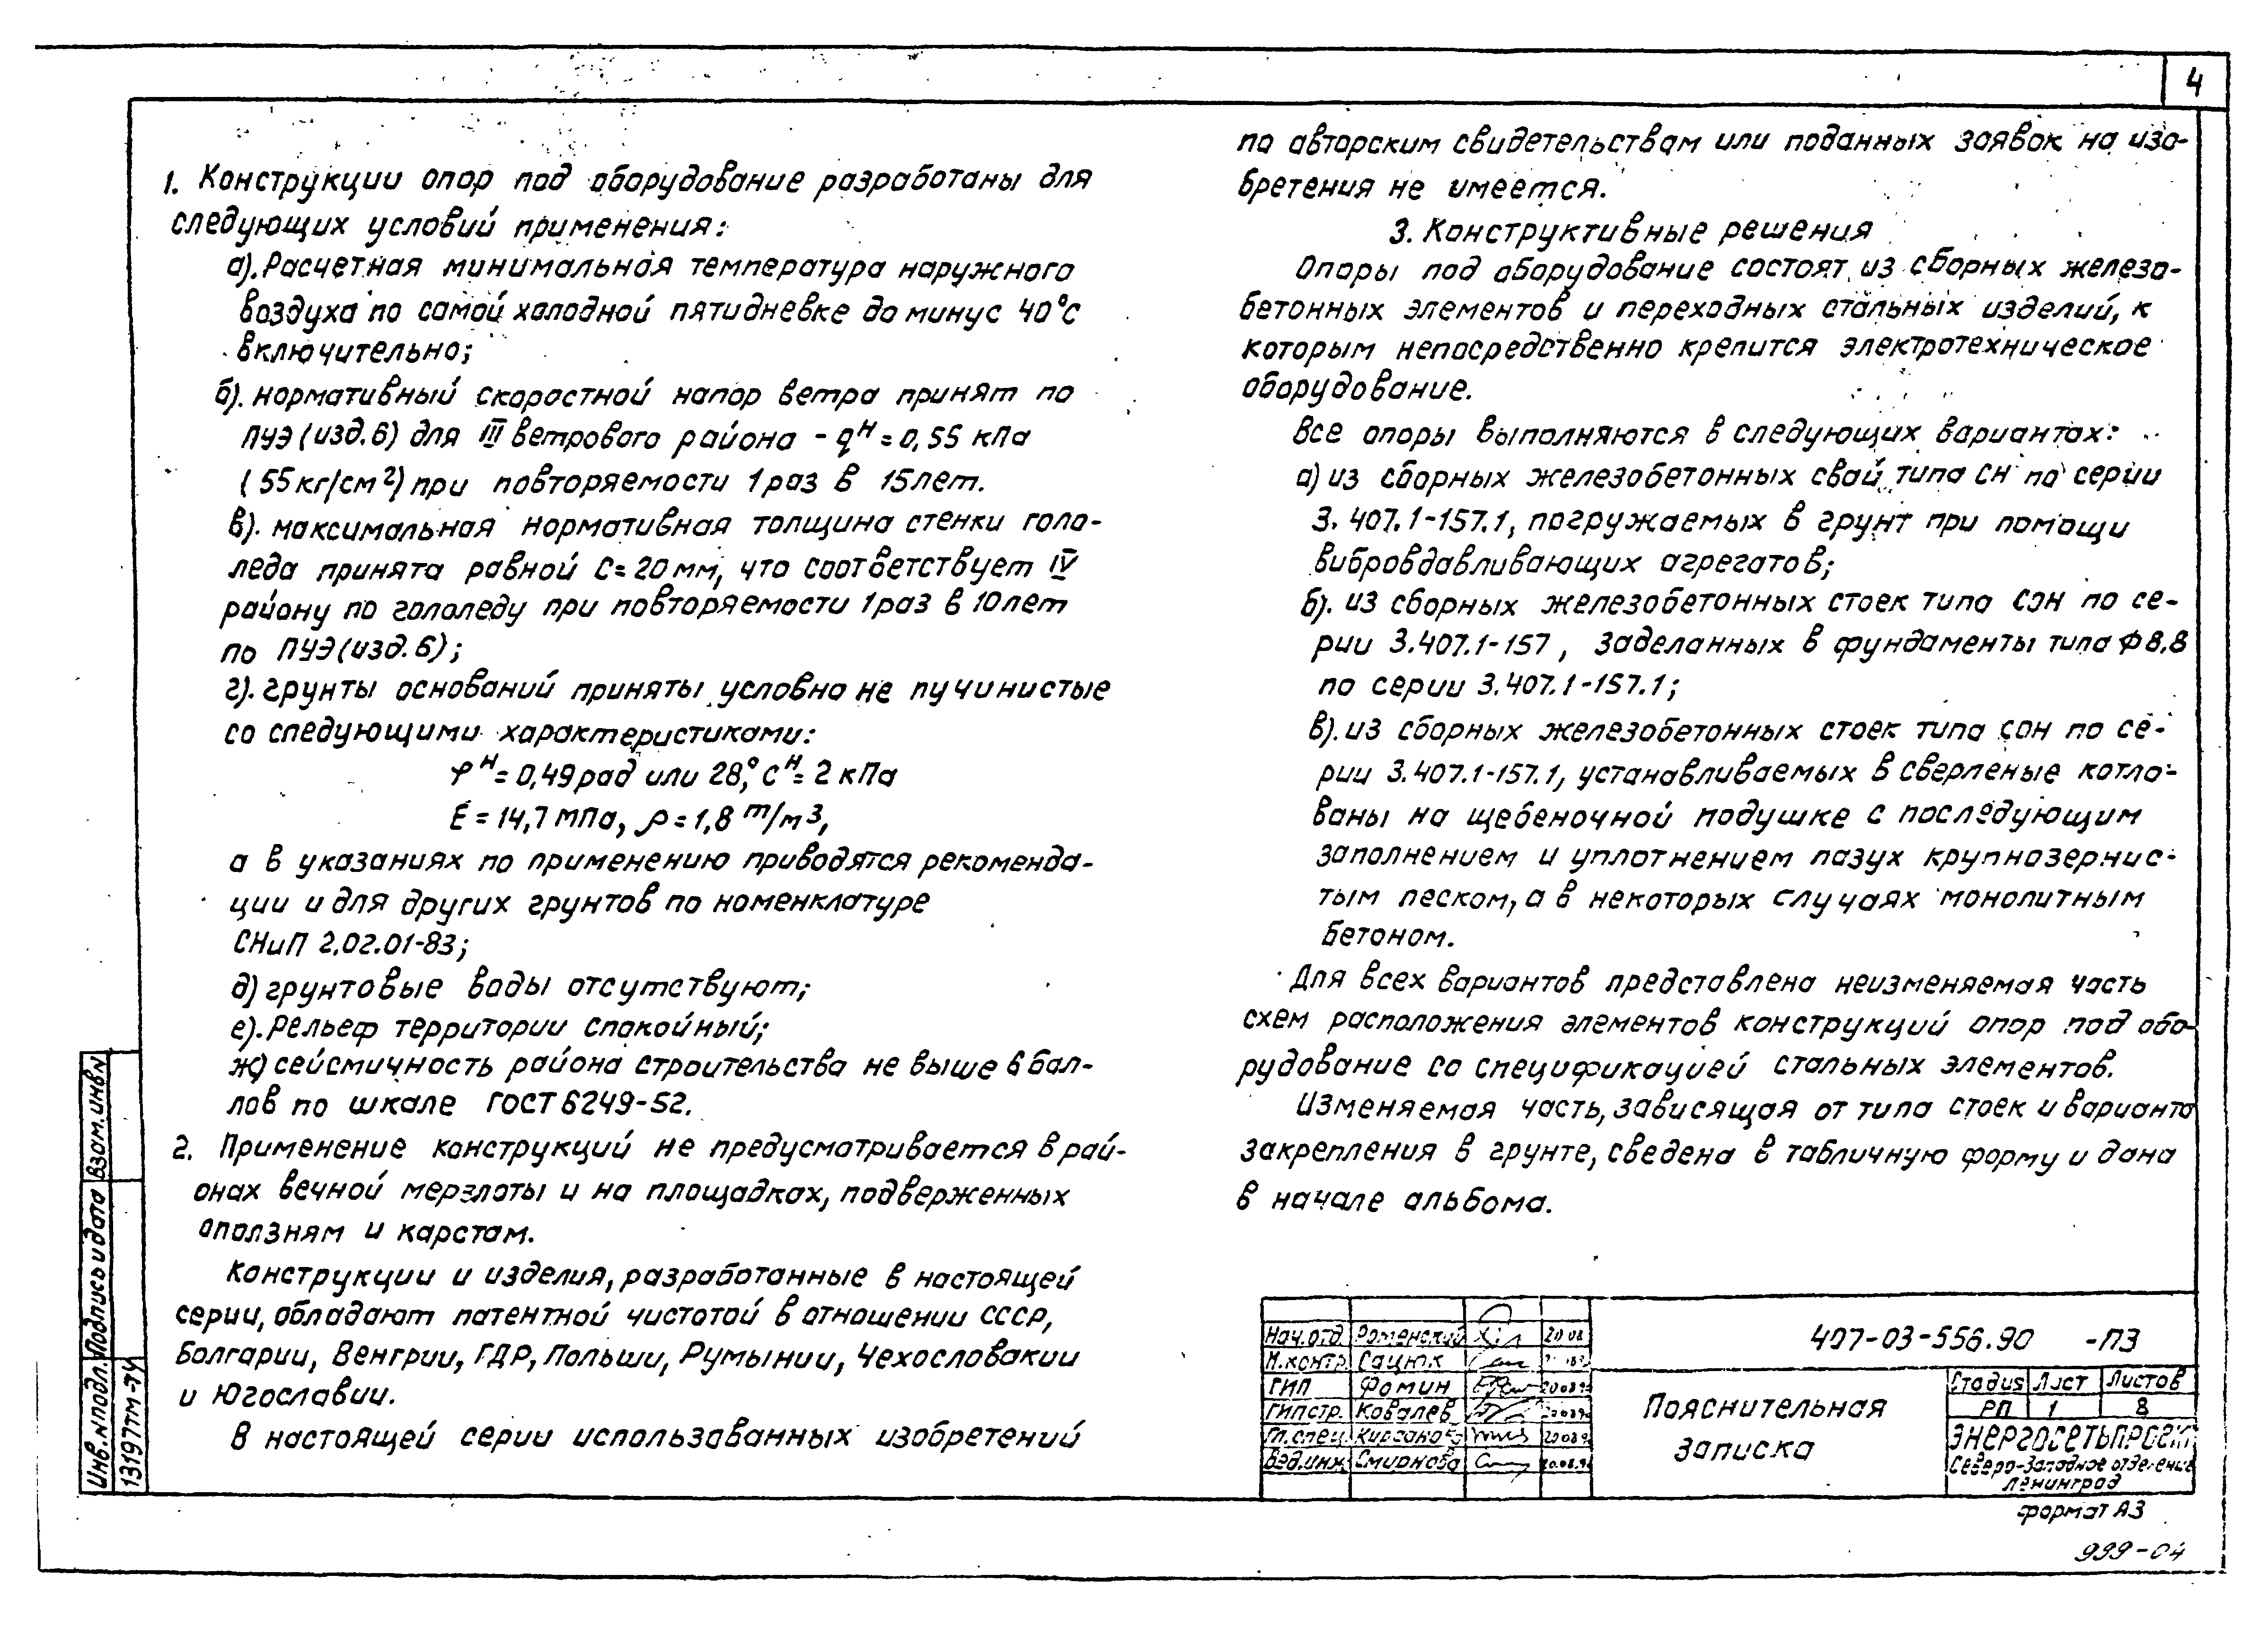 4
1. Конструкции опор под оборудование разработаны для
следующих условий применения:
а). Расчетная минимальная температура наружного
воздуха по самой холодной пятидневке до минус 40°С
включительно;
б). нормативный скоростной напор ветра принят по
ПУЭ (изд. 6) для III ветрового района - qᴴ = 0,55 кПа
(55 кг/см²) при повторяемости 1 раз в 15 лет.
в). максимальная нормативная толщина стенки голо-
леда принята равной С = 20 мм, что соответствует IV
району по гололеду при повторяемости 1 раз в 10 лет
по ПУЭ (изд. 6);
г). грунты оснований приняты условно не пучинистые
со следующими характеристиками:
φᴴ = 0,49 рад или 28°, Сᴴ = 2 кПа
Е = 14,7 МПа, ρ = 1,8 т/м³,
а в указаниях по применению приводятся рекоменда-
ции и для других грунтов по номенклатуре
СНиП 2.02.01-83;
д) грунтовые воды отсутствуют;
е). Рельеф территории спокойный;
ж) сейсмичность района строительства не выше 6 бал-
лов по шкале ГОСТ 6249-52.
2. Применение конструкций не предусматривается в рай-
онах вечной мерзлоты и на площадках, подверженных
оползням и карстам.
Конструкции и изделия, разработанные в настоящей
серии, обладают патентной чистотой в отношении СССР,
Болгарии, Венгрии, ГДР, Польши, Румынии, Чехословакии
и Югославии.
В настоящей серии использованных изобретений
по авторским свидетельствам или поданных заявок на изо-
бретения не имеется.
3. Конструктивные решения
Опоры под оборудование состоят из сборных железо-
бетонных элементов и переходных стальных изделий, к
которым непосредственно крепится электротехническое
оборудование.
Все опоры выполняются в следующих вариантах:
а) из сборных железобетонных свай типа СН по серии
3.407.1-157.1, погружаемых в грунт при помощи
вибровдавливающих агрегатов;
б). из сборных железобетонных стоек типа СОН по се-
рии 3.407.1-157, заделанных в фундаменты типа Ф8.8
по серии 3.407.1-157.1;
в). из сборных железобетонных стоек типа СОН по се-
рии 3.407.1-157.1, устанавливаемых в сверленые котло-
ваны на щебеночной подушке с последующим
заполнением и уплотнением пазух крупнозернис-
тым песком, а в некоторых случаях монолитным
бетоном.
Для всех вариантов представлена неизменяемая часть
схем расположения элементов конструкций опор под обо-
рудование со спецификацией стальных элементов.
Изменяемая часть, зависящая от типа стоек и варианта
закрепления в грунте, сведена в табличную форму и дана
в начале альбома.
Инв. н подл. Подпись и дата Взам. инв н
13197тм-74
Нач. отд. Роменский 20.08
Н. контр. Сацюк
ГИП Фомин
ГИП стр. Ковалев
Гл. спец.
Вед. инж. Смирнова
407-03-556.90 -ПЗ
Пояснительная
записка
Стадия Лист Листов
РП 1 8
ЭНЕРГОСЕТЬПРОЕКТ
Северо-Западное отделение
Ленинград
формат А3
999-04